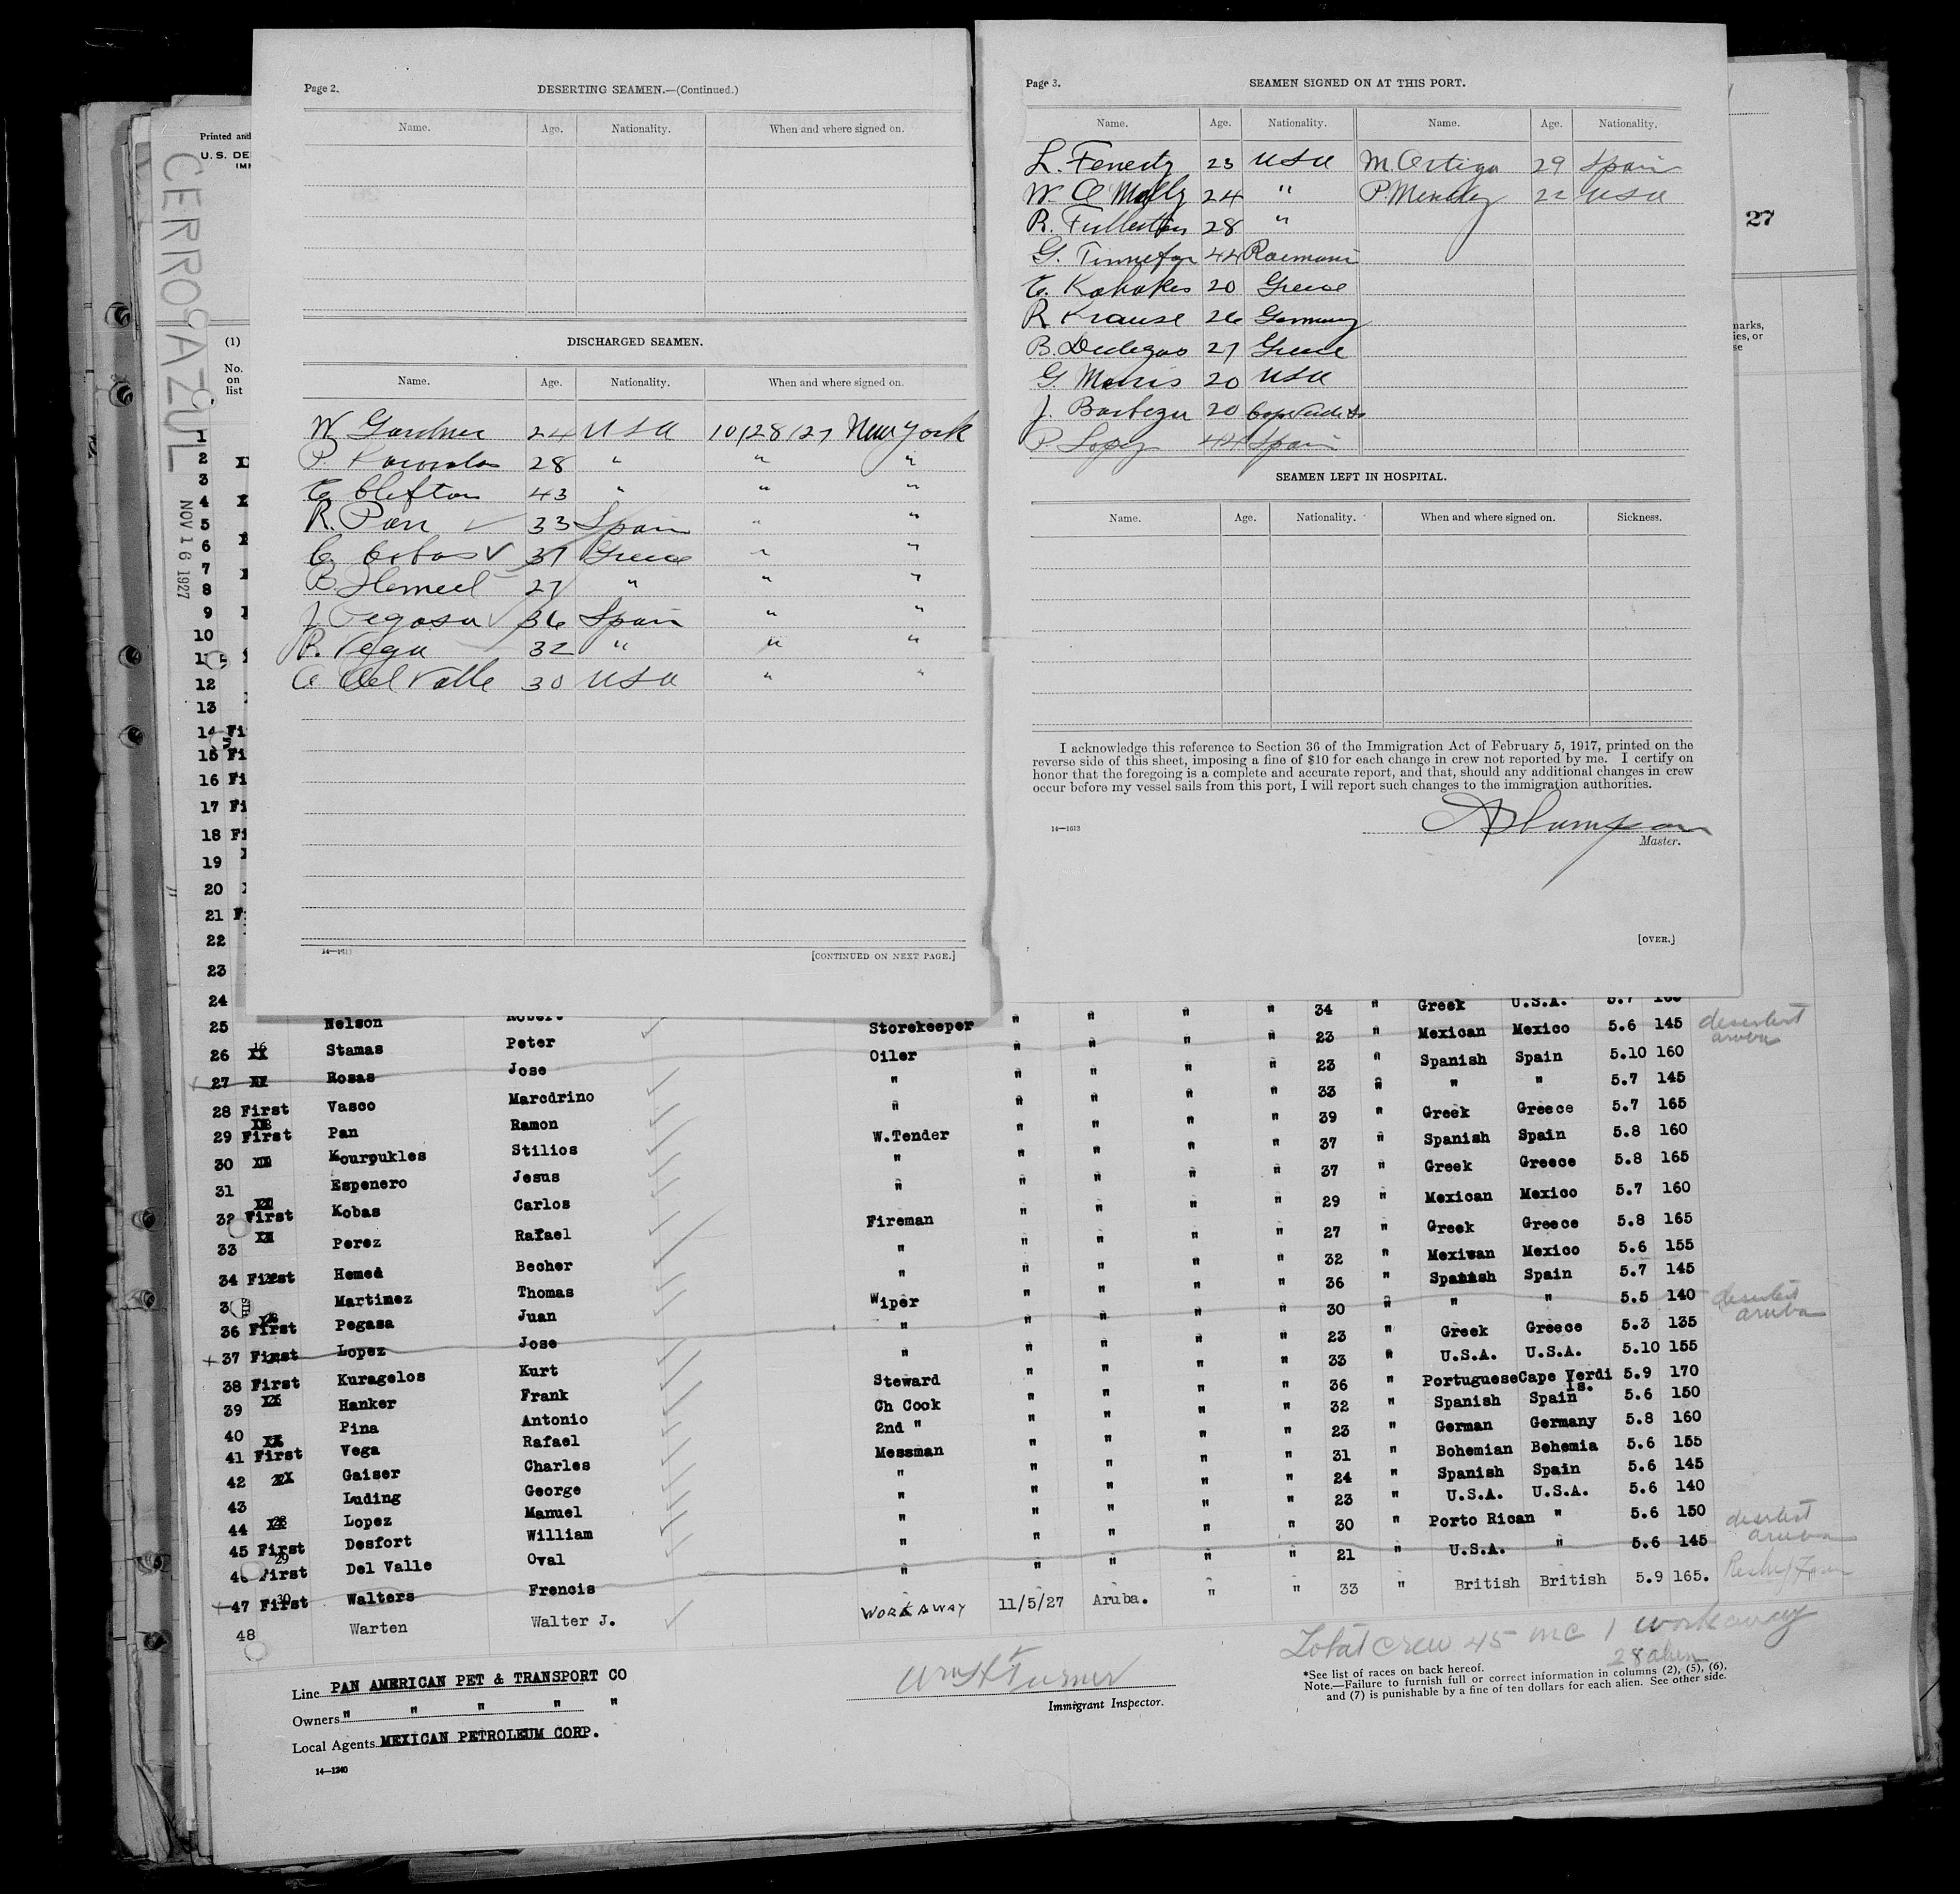 Page 2.
DESERTING SEAMEN.—(Continued.)
Name. Age. Nationality. When and where signed on.
DISCHARGED SEAMEN.
Name. Age. Nationality. When and where signed on.
W Gardner 24 USA 10/28/27 New York
P. 28 " " "
E. Clifton 43 " " "
R. Pan ✓ 33 Spain " "
C. Cobas ✓ 37 Greece " "
B. Hemed 27 " " "
J Pegasa ✓ 36 Spain " "
R. Vega 32 " " "
O Del Valle 30 USA " "
14—1613
[CONTINUED ON NEXT PAGE.]
Page 3.
SEAMEN SIGNED ON AT THIS PORT.
Name. Age. Nationality. Name. Age. Nationality.
L. 23 USA M. Ortiga 29 Spain
W. O Mally 24 " P. 22 USA
R. Fullerton 28 "
G. 44
E. Kahakes 20 Greece
R Krause 26 Germany
B. 27 Greece
G. Morris 20 USA
J. 20 Cape Verde Is
P. Lopez 44 Spain
SEAMEN LEFT IN HOSPITAL.
Name. Age. Nationality. When and where signed on. Sickness.
I acknowledge this reference to Section 36 of the Immigration Act of February 5, 1917, printed on the
reverse side of this sheet, imposing a fine of $10 for each change in crew not reported by me. I certify on
honor that the foregoing is a complete and accurate report, and that, should any additional changes in crew
occur before my vessel sails from this port, I will report such changes to the immigration authorities.
14—1613
Master.
[OVER.]
Printed and
U. S. DE
IMM
CERRO AZUL
NOV 16 1927
27
(1)
No.
on
list
marks,
ies, or
se
1
2
3
4
5
6
7
8
9
10
11
12
13
14 Fi
15 Fi
16 Fi
17 Fi
18 Fi
19
20
21 Fi
22
23
24 " " " " 34 " Greek U.S.A. 5.7
25 Nelson Robert Storekeeper " " " " 23 " Mexican Mexico 5.6 145 desertest aruba
26 16 Stamas Peter Oiler " " " " 23 " Spanish Spain 5.10 160
27 Rosas Jose " " " " " 33 " " " 5.7 145
28 First Vasco Marcdrino " " " " " 39 " Greek Greece 5.7 165
29 First Pan Ramon W.Tender " " " " 37 " Spanish Spain 5.8 160
30 Kourpukles Stilios " " " " " 37 " Greek Greece 5.8 165
31 Espenero Jesus " " " " " 29 " Mexican Mexico 5.7 160
32 First Kobas Carlos Fireman " " " " 27 " Greek Greece 5.8 165
33 Perez Rafael " " " " " 32 " Mexiwan Mexico 5.6 155
34 First Hemed Becher " " " " " 36 " Spanish Spain 5.7 145
3 Martinez Thomas Wiper " " " " 30 " " " 5.5 140 desertest aruba
36 First Pegasa Juan " " " " " 23 " Greek Greece 5.3 135
37 First Lopez Jose " " " " " 33 " U.S.A. U.S.A. 5.10 155
38 First Kuragelos Kurt Steward " " " " 36 " Portuguese Cape Verdi Is. 5.9 170
39 Hanker Frank Ch Cook " " " " 32 " Spanish Spain 5.6 150
40 Pina Antonio 2nd " " " " " 23 " German Germany 5.8 160
41 First Vega Rafael Messman " " " " 31 " Bohemian Behemia 5.6 155
42 Gaiser Charles " " " " " 24 " Spanish Spain 5.6 145
43 Luding George " " " " " 23 " U.S.A. U.S.A. 5.6 140
44 28 Lopez Manuel " " " " " 30 " Porto Rican " 5.6 150 desertest aruba
45 First Desfort William " " " " " 21 " U.S.A. " 5.6 145
46 29 First Del Valle Oval
47 30 First Walters Frencis
48 Warten Walter J. WORKAWAY 11/5/27 Aruba. " " 33 " British British 5.9 165.
Total crew 45 inc 1 workaway
28 alien
Line PAN AMERICAN PET & TRANSPORT CO
Owners " " " " "
Local Agents MEXICAN PETROLEUM CORP.
14—1240
Wm H Turner
Immigrant Inspector.
*See list of races on back hereof.
Note.—Failure to furnish full or correct information in columns (2), (5), (6),
and (7) is punishable by a fine of ten dollars for each alien. See other side.